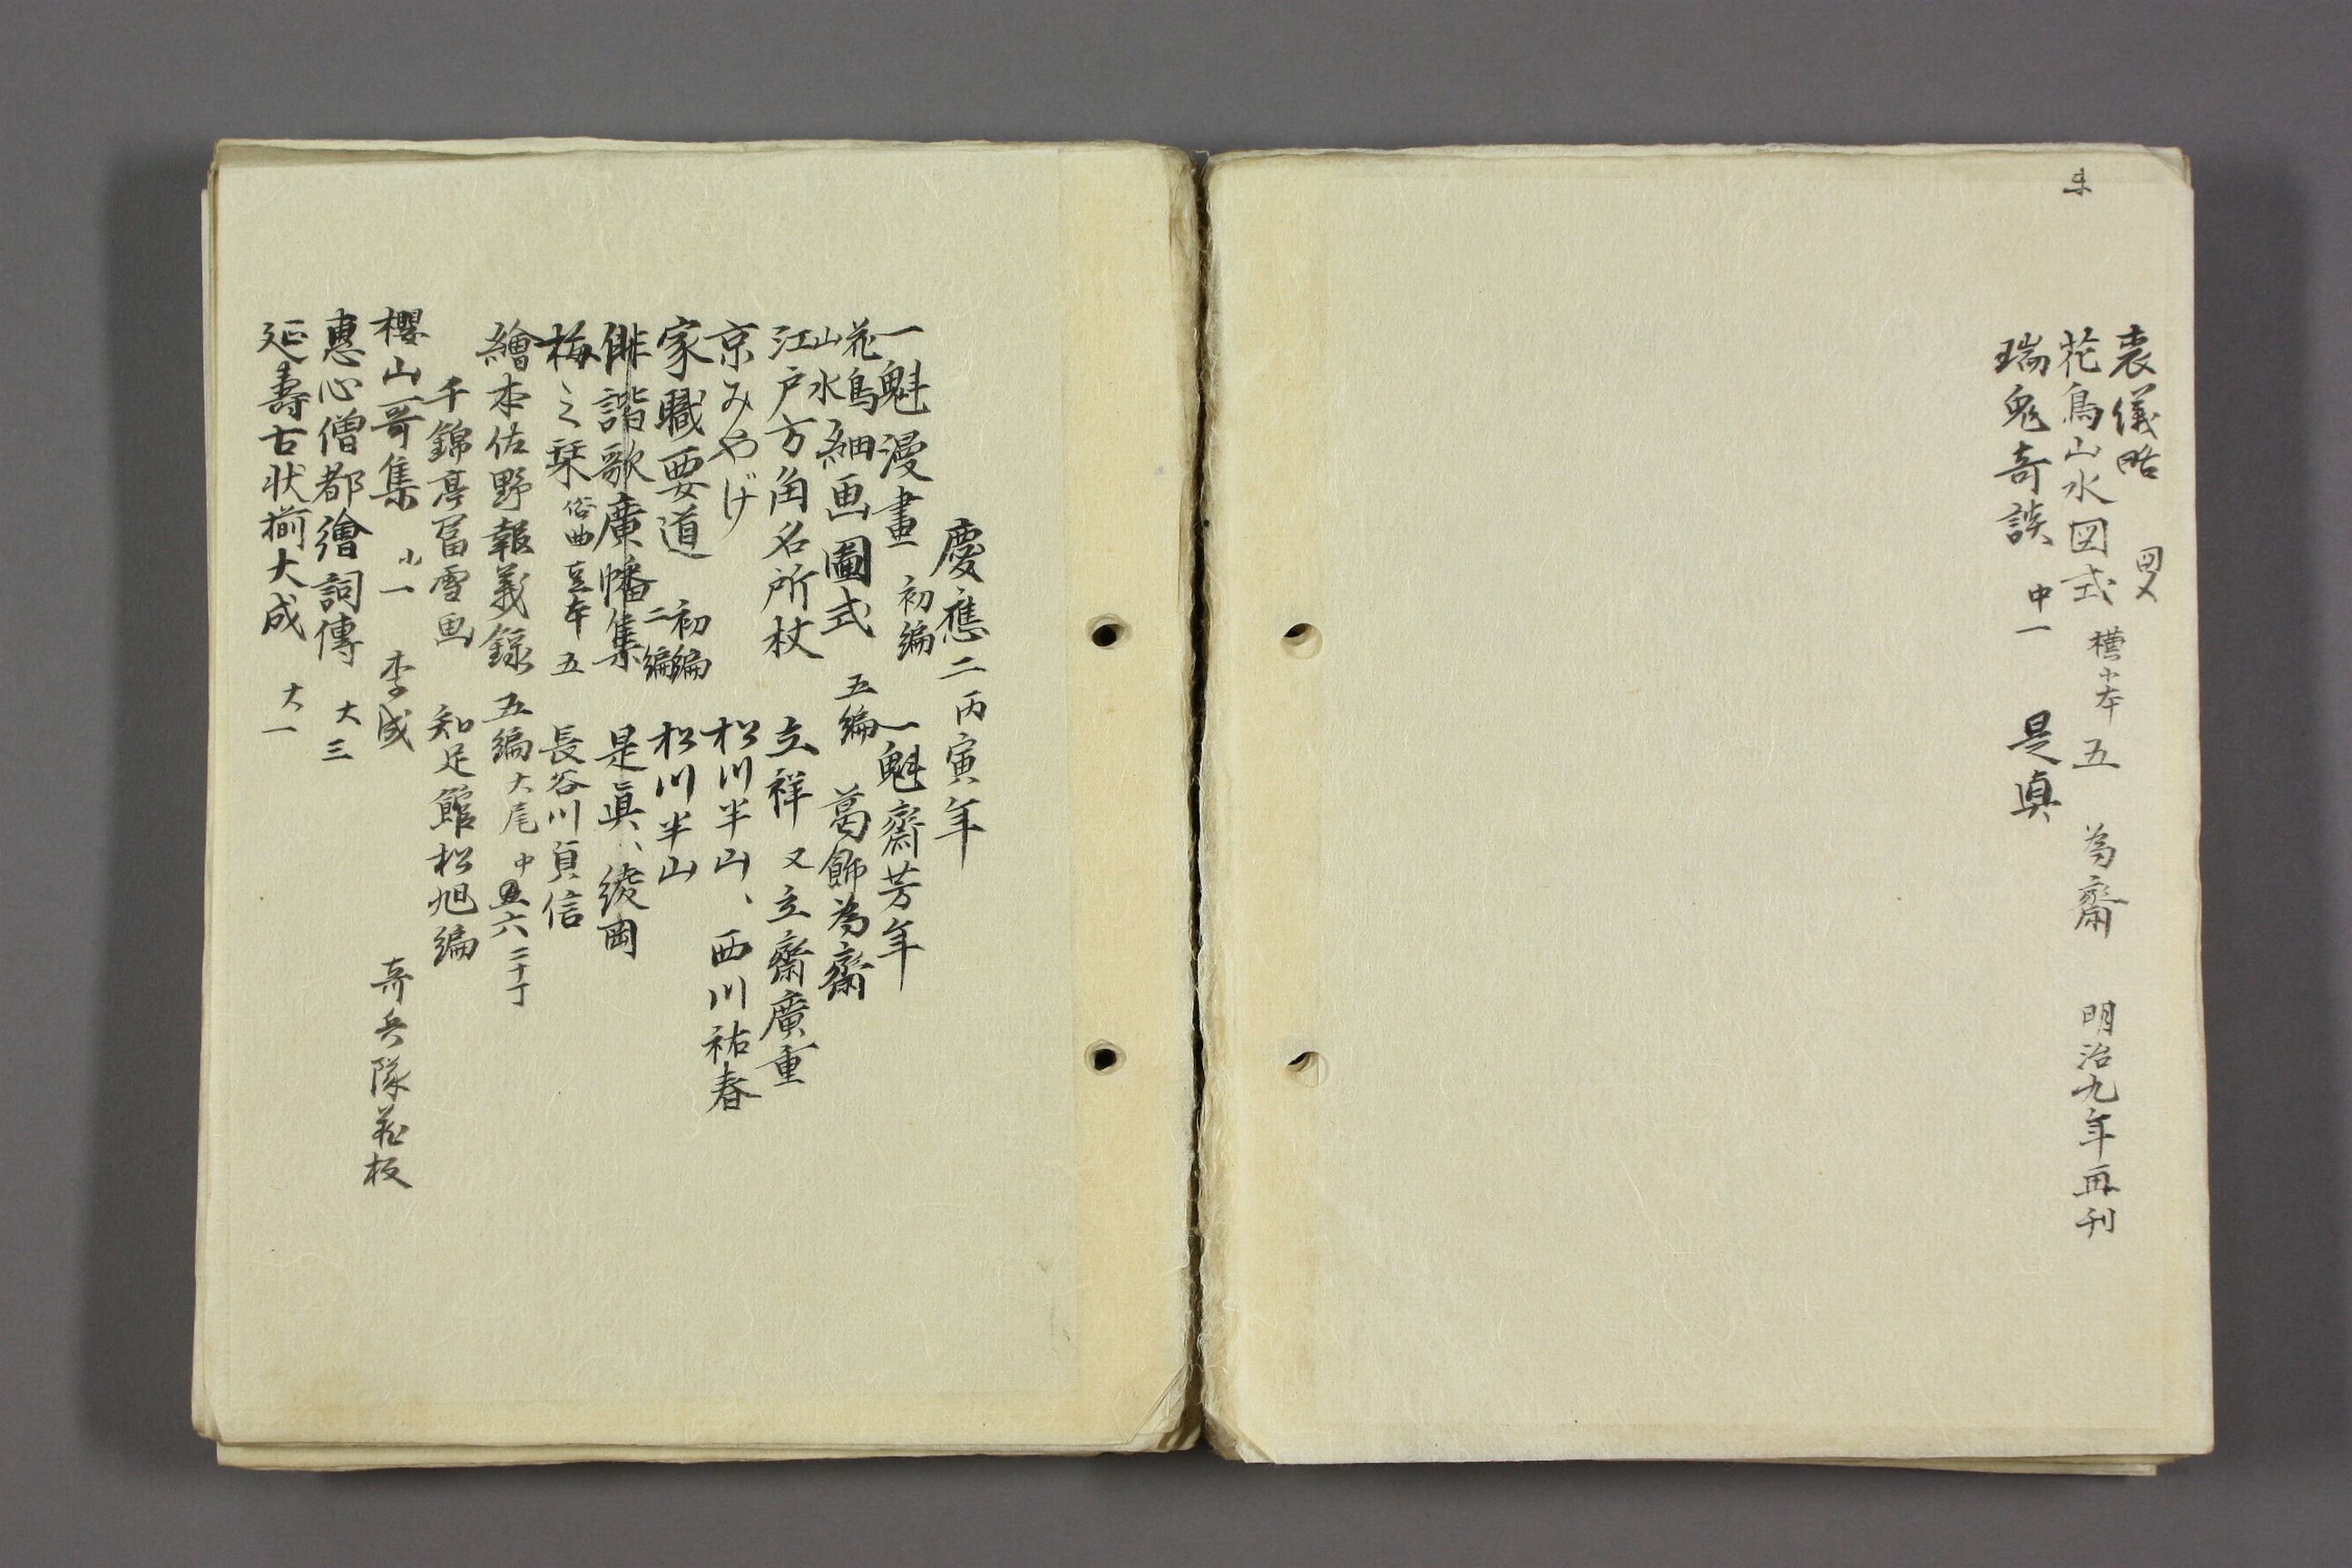 喪儀略 図入
花鳥山水図式 横小本 五 為齋 明治九年再刊
瑞鬼奇談 中一 是真
慶應二丙寅年
一魁漫畫 初編 一魁齋芳年
花鳥山水細画圖式 五編 葛飾為齋
江戸方角名所杖 立祥 又立齋廣重
京みやげ 松川半山、西川祐春
家職要道 初編 二編 松川半山
俳諧歌廣幡集 是眞、綾岡
梅之栞 俗曲 豆本 五 長谷川貞信
繪本佐野報義録 五編大尾 中 六 二十丁
千錦亭冨雪画 知足館松旭編
櫻山哥集 小一 李成 奇兵隊蔵板
惠心僧都繪詞傳 大三
延壽古状揃大成 大一